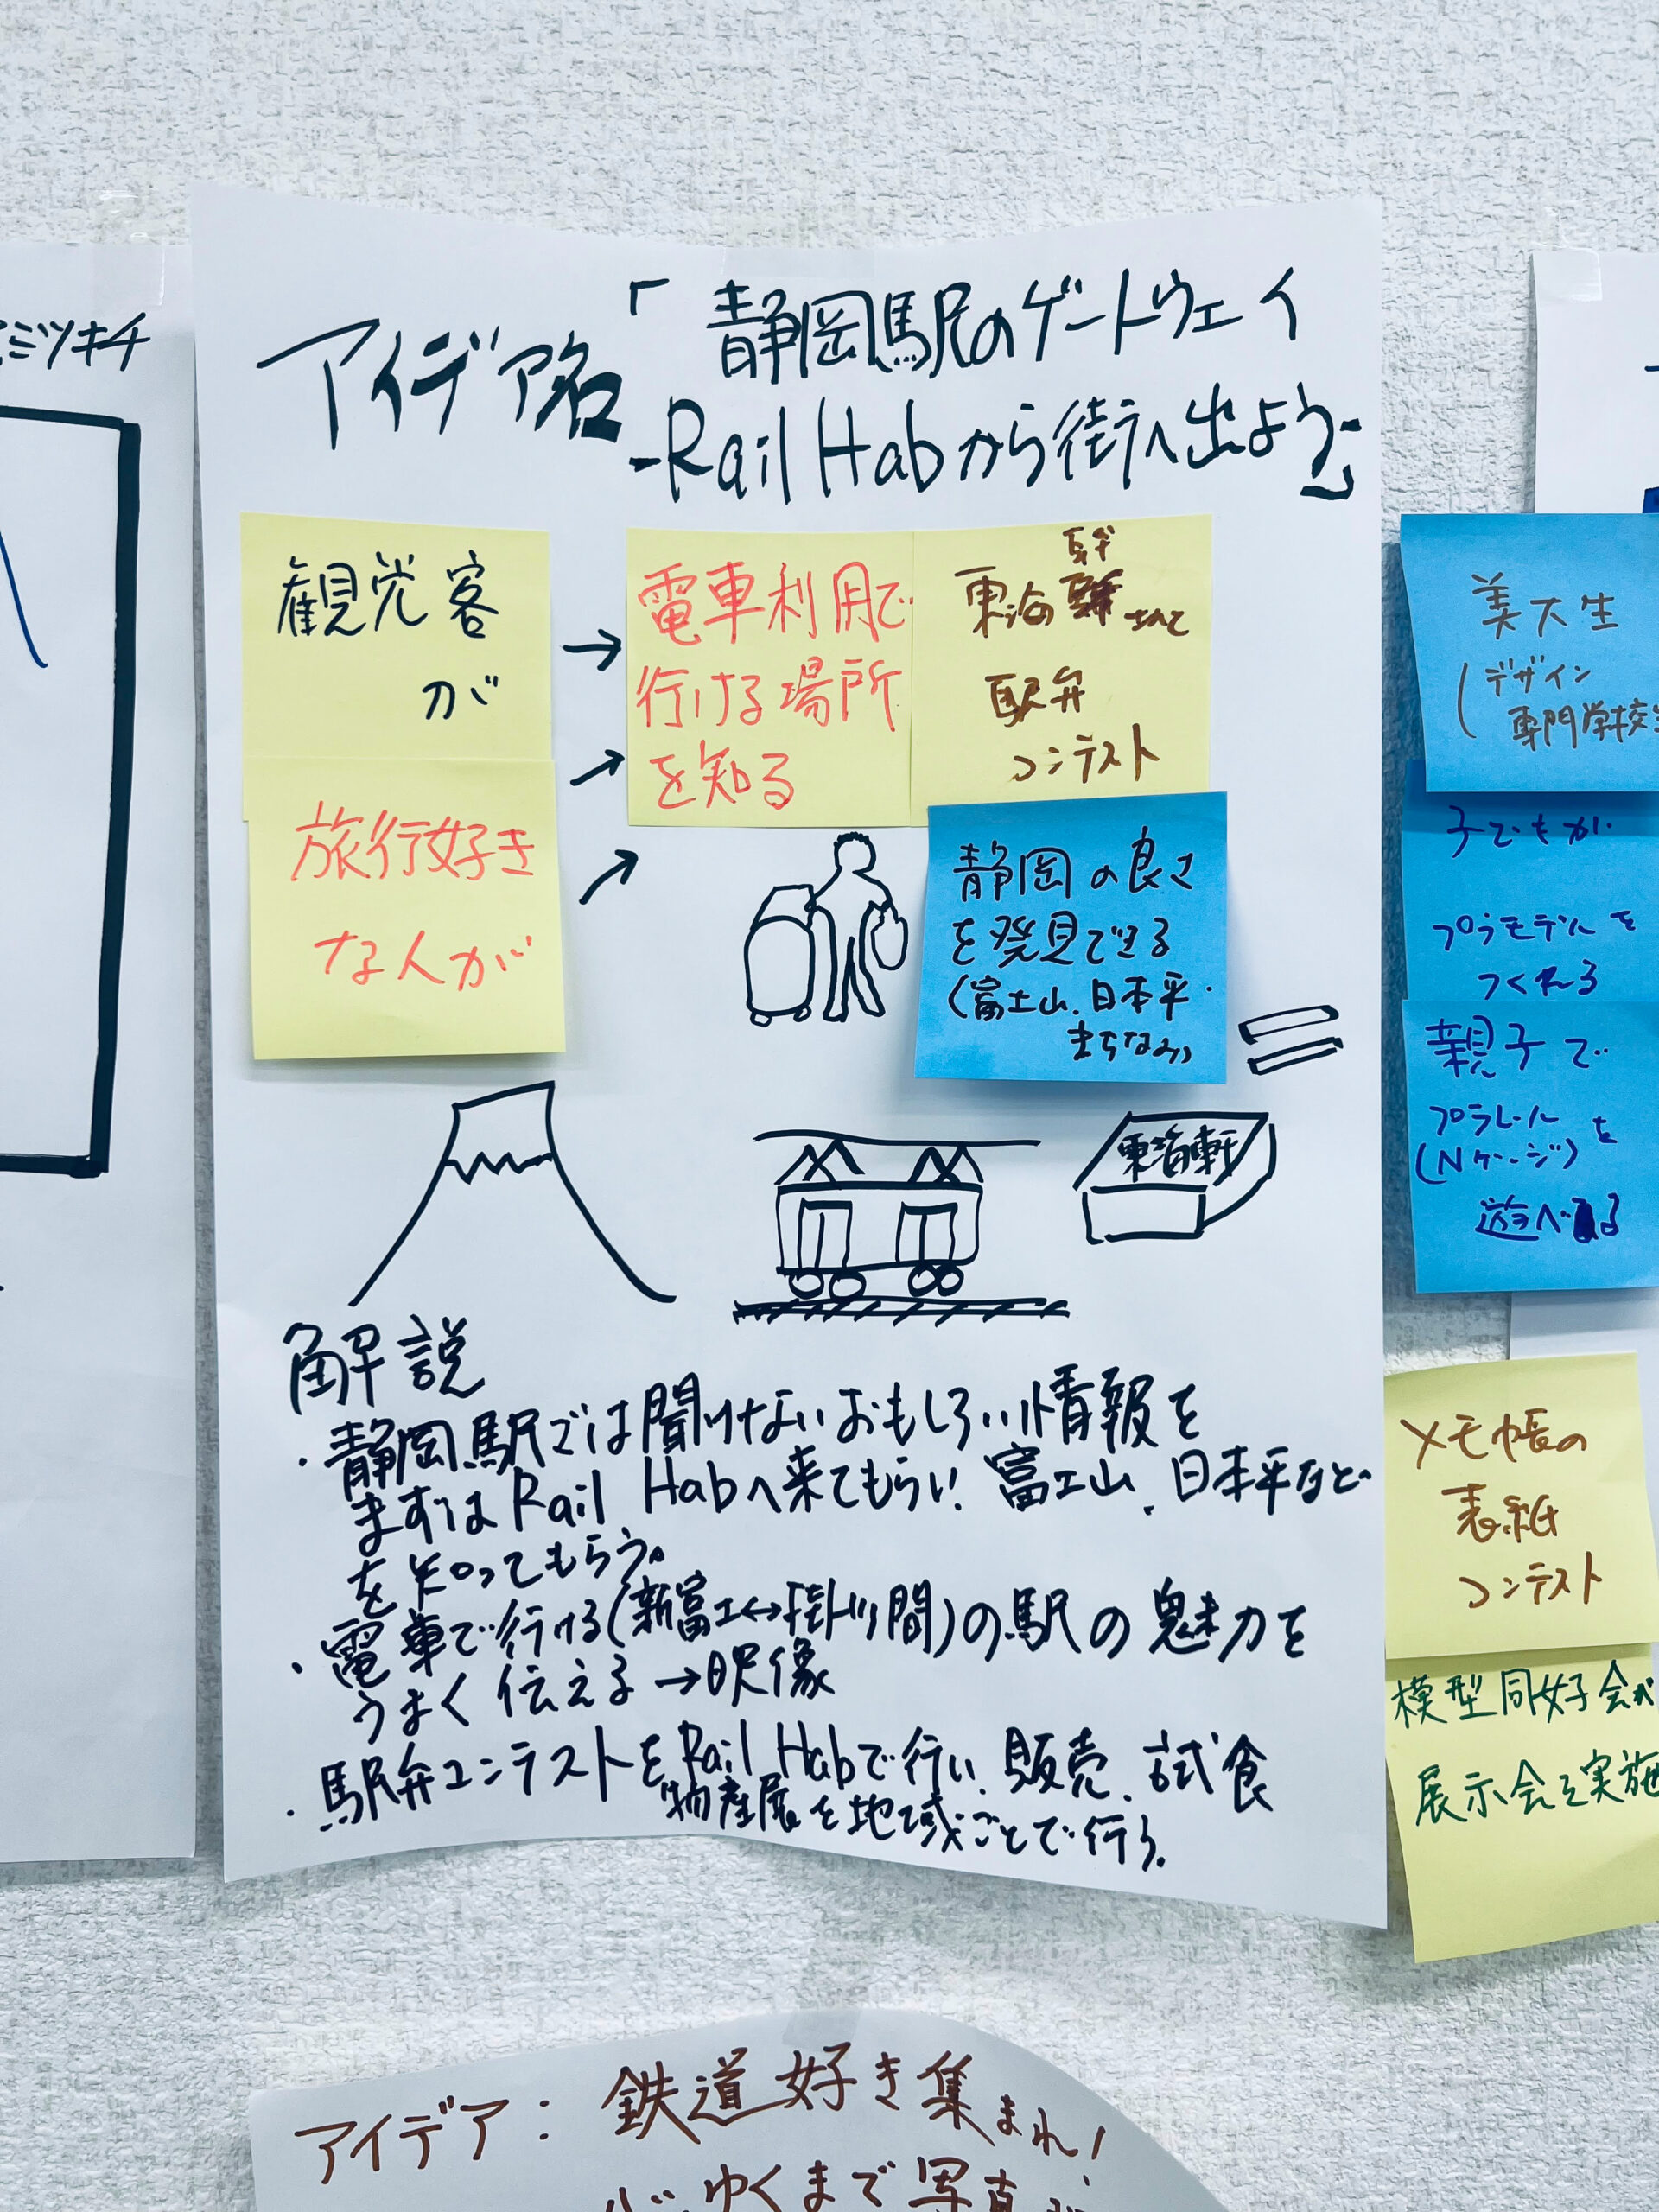 ミツキチ
アイデア名
「静岡駅のゲートウェイ
-Rail Habから街へ出よう-」
観光客
が
旅行好き
な人が
→
→
→
電車利用で
行ける場所
を知る
東海軒
駅弁
コンテスト
静岡の良さ
を発見できる
(富士山、日本平、
まちなみ)
東海軒
解説
・静岡駅では聞けないおもしろい情報を
まずはRail Habへ来てもらい、富士山、日本平など
を知ってもらう。
・電車で行ける(新富士↔掛川間)の駅の魅力を
うまく伝える→映像
・駅弁コンテストをRail Habで行い、販売、試食
物産展を地域ごとで行う。
美大生
(デザイン
専門学校生
子どもが
プラモデルを
つくれる
親子で
プラレール
(Nゲージ)を
遊べる
メモ帳の
表紙
コンテスト
模型同好会が
展示会を実施
アイデア:鉄道好き集まれ!
心ゆくまで写真